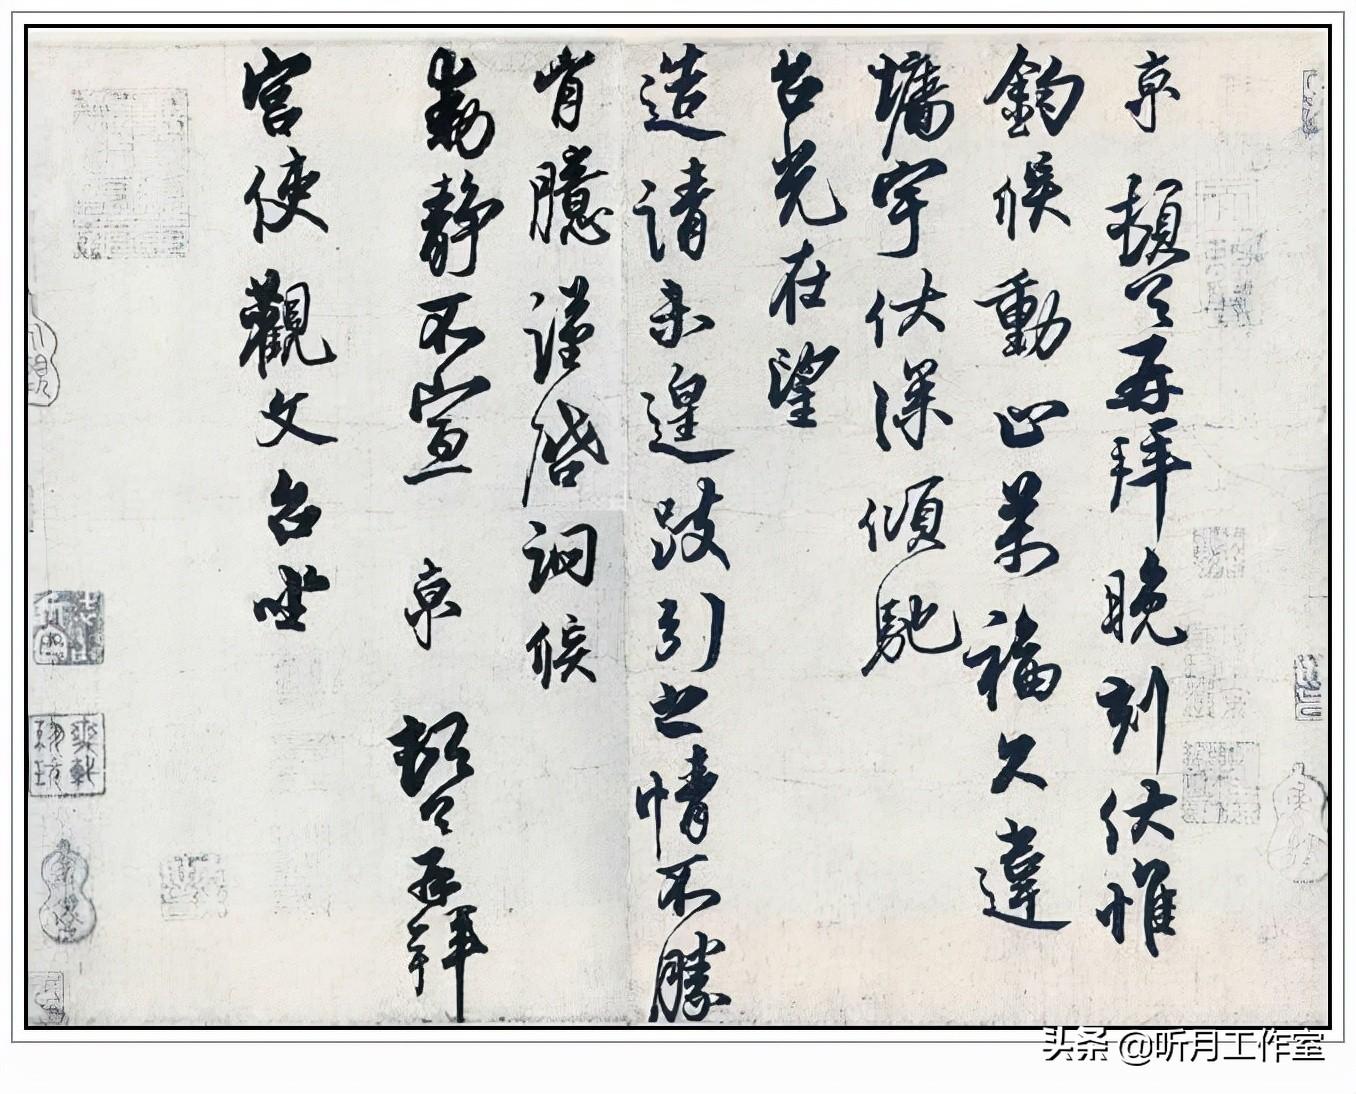 京 頓首再拜晚刻伏惟
鈞候動止萬福久違
墻宇伏深傾馳
台光在望
造請未遑跂引之情不勝
胷臆謹啓詗候
動靜不宣 京 頓首再拜
宮使觀文台坐
头条 @听月工作室